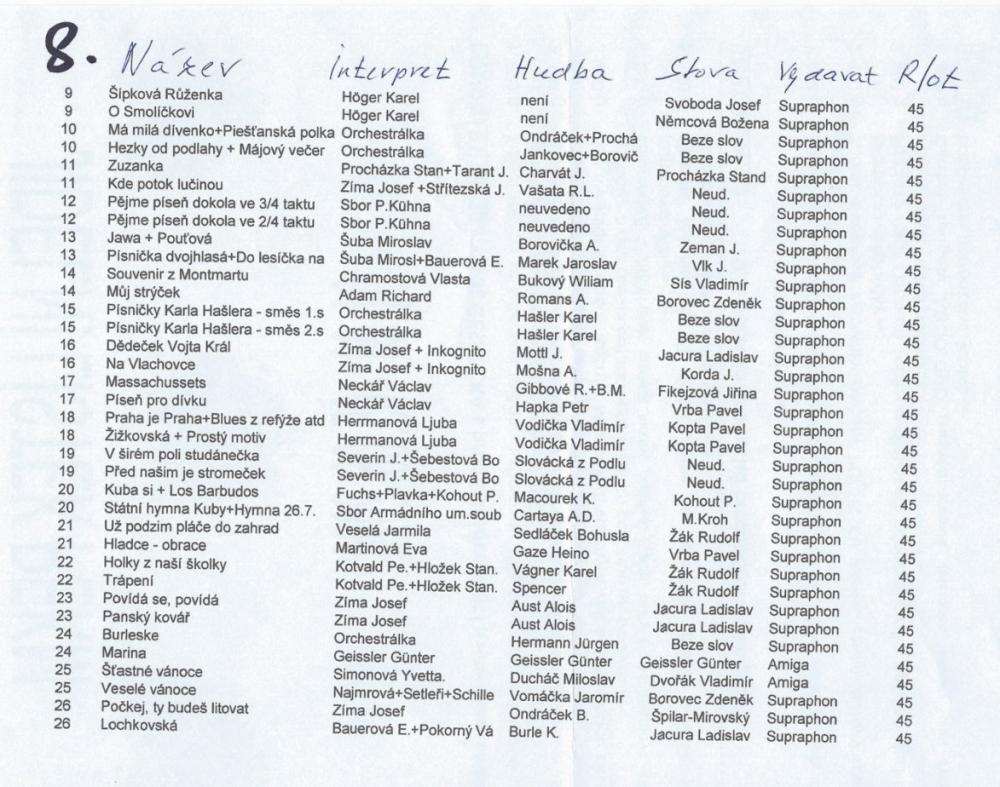 8. Název Interpret Hudba Slova Vydavat R/ot
9 Šípková Růženka Höger Karel není Svoboda Josef Supraphon 45
9 O Smolíčkovi Höger Karel není Němcová Božena Supraphon 45
10 Má milá dívenko+Piešťanská polka Orchestrálka Ondráček+Prochá Beze slov Supraphon 45
10 Hezky od podlahy + Májový večer Orchestrálka Jankovec+Borovič Beze slov Supraphon 45
11 Zuzanka Procházka Stan+Tarant J. Charvát J. Procházka Stand Supraphon 45
11 Kde potok lučinou Zíma Josef +Střítezská J. Vašata R.L. Neud. Supraphon 45
12 Pějme píseň dokola ve 3/4 taktu Sbor P.Kühna neuvedeno Neud. Supraphon 45
12 Pějme píseň dokola ve 2/4 taktu Sbor P.Kühna neuvedeno Neud. Supraphon 45
13 Jawa + Pouťová Šuba Miroslav Borovička A. Zeman J. Supraphon 45
13 Písnička dvojhlasá+Do lesíčka na Šuba Mirosl+Bauerová E. Marek Jaroslav Vlk J. Supraphon 45
14 Souvenir z Montmartu Chramostová Vlasta Bukový Wiliam Sís Vladimír Supraphon 45
14 Můj strýček Adam Richard Romans A. Borovec Zdeněk Supraphon 45
15 Písničky Karla Hašlera - směs 1.s Orchestrálka Hašler Karel Beze slov Supraphon 45
15 Písničky Karla Hašlera - směs 2.s Orchestrálka Hašler Karel Beze slov Supraphon 45
16 Dědeček Vojta Král Zíma Josef + Inkognito Mottl J. Jacura Ladislav Supraphon 45
16 Na Vlachovce Zíma Josef + Inkognito Mošna A. Korda J. Supraphon 45
17 Massachussets Neckář Václav Gibbové R.+B.M. Fikejzová Jiřina Supraphon 45
17 Píseň pro dívku Neckář Václav Hapka Petr Vrba Pavel Supraphon 45
18 Praha je Praha+Blues z refýže atd Herrmanová Ljuba Vodička Vladimír Kopta Pavel Supraphon 45
18 Žižkovská + Prostý motiv Herrmanová Ljuba Vodička Vladimír Kopta Pavel Supraphon 45
19 V širém poli studánečka Severin J.+Šebestová Bo Slovácká z Podlu Neud. Supraphon 45
19 Před našim je stromeček Severin J.+Šebestová Bo Slovácká z Podlu Neud. Supraphon 45
20 Kuba si + Los Barbudos Fuchs+Plavka+Kohout P. Macourek K. Kohout P. Supraphon 45
20 Státní hymna Kuby+Hymna 26.7. Sbor Armádního um.soub Cartaya A.D. M.Kroh Supraphon 45
21 Už podzim pláče do zahrad Veselá Jarmila Sedláček Bohusla Žák Rudolf Supraphon 45
21 Hladce - obrace Martinová Eva Gaze Heino Vrba Pavel Supraphon 45
22 Holky z naší školky Kotvald Pe.+Hložek Stan. Vágner Karel Žák Rudolf Supraphon 45
22 Trápení Kotvald Pe.+Hložek Stan. Spencer Žák Rudolf Supraphon 45
23 Povídá se, povídá Zíma Josef Aust Alois Jacura Ladislav Supraphon 45
23 Panský kovář Zíma Josef Aust Alois Jacura Ladislav Supraphon 45
24 Burleske Orchestrálka Hermann Jürgen Beze slov Supraphon 45
24 Marina Geissler Günter Geissler Günter Geissler Günter Amiga 45
25 Šťastné vánoce Simonová Yvetta. Ducháč Miloslav Dvořák Vladimír Amiga 45
25 Veselé vánoce Najmrová+Setleři+Schille Vomáčka Jaromír Borovec Zdeněk Supraphon 45
26 Počkej, ty budeš litovat Zíma Josef Ondráček B. Špilar-Mirovský Supraphon 45
26 Lochkovská Bauerová E.+Pokorný Vá Burle K. Jacura Ladislav Supraphon 45